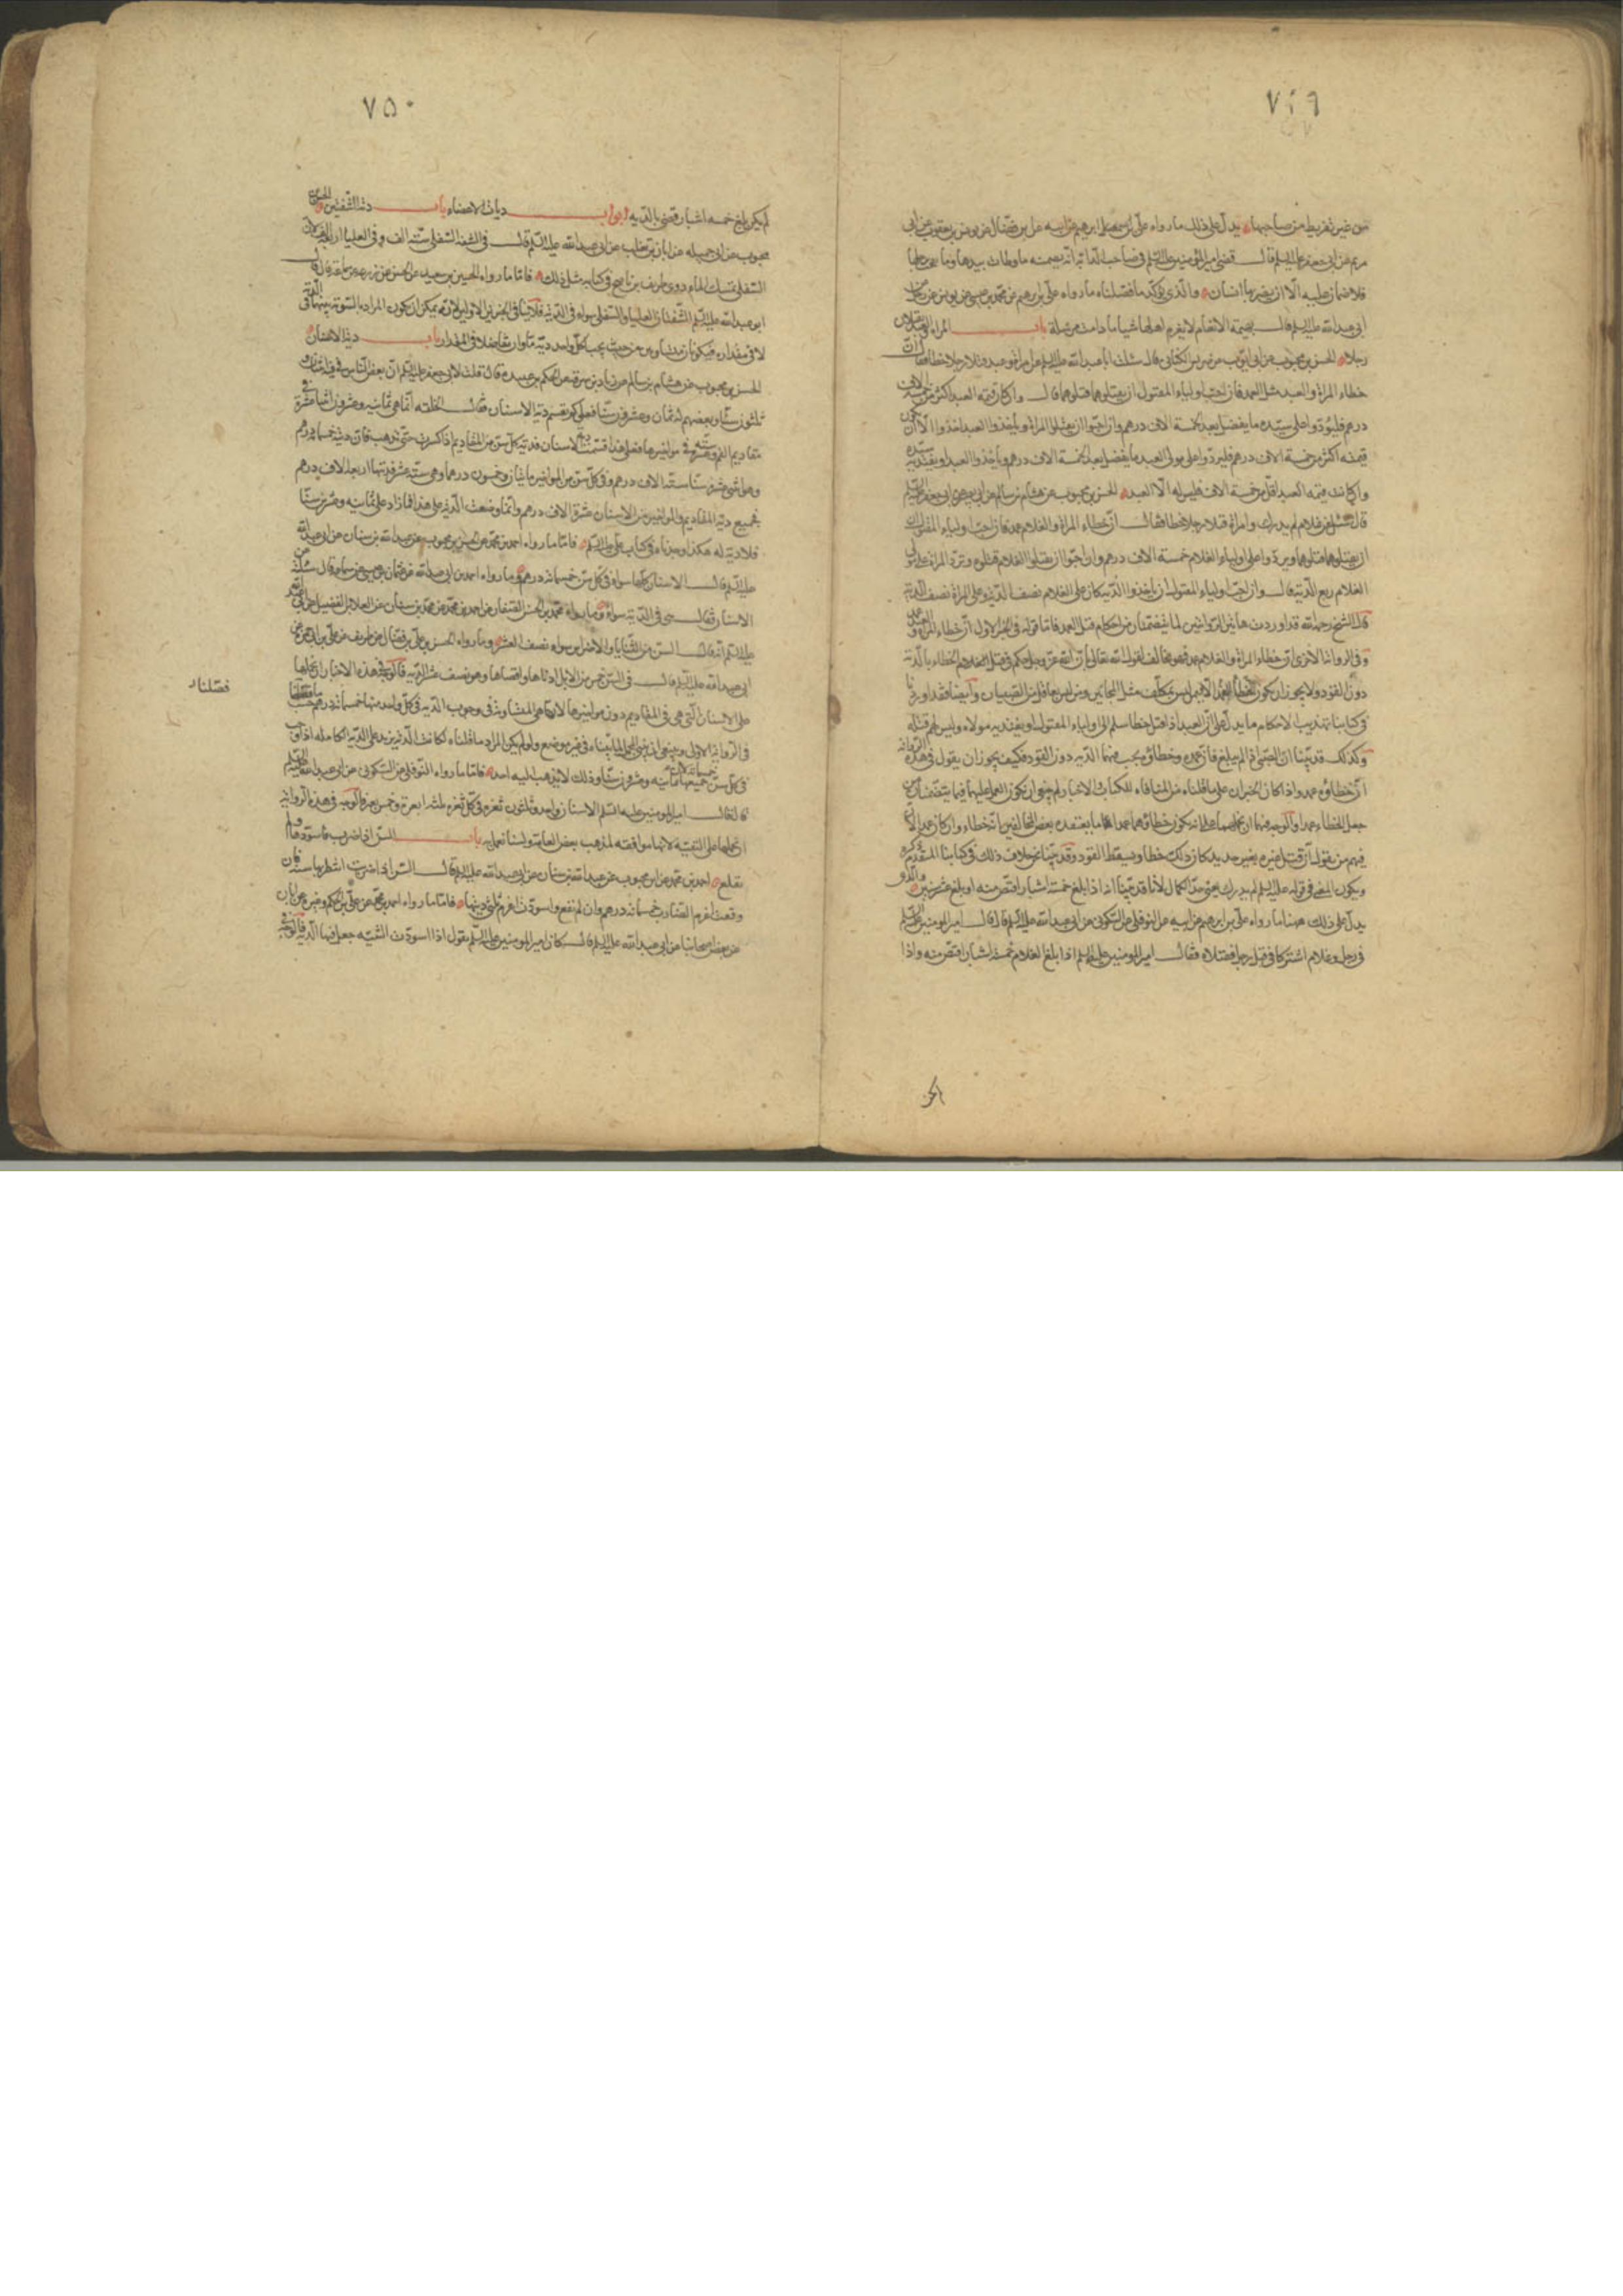 ٧٤٩
من غير تفريط من صاحبها يدل على ذلك ما رواه علي بن ابرهيم عن ابيه عن ابن فضال عن يونس بن يعقوب عن ابي
مريم عن ابي جعفر عليه السلم قال قضى امير المؤمنين عليه السلم في صاحب الدابة انه يضمن ما وطئت بيدها وما بعجت برجلها
فلا ضمان عليه الا ان يضربها انسان والذي يؤكد ما فصلناه ما رواه علي بن ابرهيم عن محمد بن عيسى عن يونس عن رجل عن
ابي عبدالله عليه السلم قال بهيمة الانعام لا يغرم اهلها شيئا ما دامت مرسلة باب المراة والعبد يقتلان
رجلا الحسن بن محبوب عن ابي ايوب عن ضريس الكناسي قال سئلت ابا عبدالله عليه السلم عن امراة وعبد قتلا رجلا خطا فقال ان
خطاء المراة والعبد مثل العمد فان احب اولياء المقتول ان يقتلوهما قتلوهما قال وان كان قيمة العبد اكثر من خمسة الاف
درهم فليردوا على سيده ما يفضل بعد الخمسة الاف درهم وان احبوا ان يقتلوا المراة وياخذوا العبد اخذوا الا ان يكون
قيمته اكثر من خمسة الاف درهم فليردوا على مولى العبد ما يفضل بعد الخمسة الاف درهم وياخذوا العبد او يفتديه سيده
وان كانت قيمة العبد اقل من خمسة الاف فليس له الا العبد الحسن بن محبوب عن هشام بن سالم عن ابي بصير عن ابي جعفر عليه السلم
قال سئل عن غلام لم يدرك وامراة قتلا رجلا خطا فقال ان خطاء المراة والغلام عمد فان احب اولياء المقتول
ان يقتلوهما قتلوهما ويردوا على اولياء الغلام خمسة الاف درهم وان احبوا ان يقتلوا الغلام قتلوه وترد المراة على مولى
الغلام ربع الدية قال وان احب اولياء المقتول ان ياخذوا الدية كان على الغلام نصف الدية وعلى المراة نصف الدية
قال الشيخ رحمه الله قد اوردت هاتين الروايتين لما يتضمنان من احكام قتل العمد فاما قوله في الخبر الاول ان خطاء المراة والعبد عمد
وفي الرواية الاخرى ان خطاء المراة والغلام عمد فهو مخالف لقول الله تعالى لان الله عز وجل حكم في قتل الخطاء بالدية
دون القود ولا يجوز ان يكون الخطأ عمدا الا فيمن ليس بمكلف مثل المجانين ومن ليس عاقلا من الصبيان وايضا فقد اوردنا
في كتابنا تهذيب الاحكام ما يدل على ان العبد اذا قتل خطا سلم الى اولياء المقتول او يفتديه مولاه وليس لهم قتله
وكذلك قد بينا ان الصبي اذا لم يبلغ فان عمده وخطاؤه يجب فيهما الدية دون القود فكيف يجوز ان يقول في هذه الرواية
ان خطاؤه عمد واذا كان الخبران على ما قلناه من المنافاة للكتاب والاخبار لم ينبغ ان يكون العمل عليهما فيما يتضمنان من
جعل الخطاء عمدا والوجه فيهما ان نحملهما على ان يكون خطاؤهما عمدا على ما يعتقده بعض المخالفين انه خطاء وان كان عمدا لان
فيهم من يقول ان قتل غيره بغير حديد كان ذلك خطا ويسقط القود وقد بينا نحن خلاف ذلك في كتابنا المتقدم ذكره
ويكون المعنى في قوله عليه السلم لم يدرك يعني حد الكمال لانا قد بينا انه اذا بلغ خمسة اشبار اقتص منه او بلغ عشر سنين والذي
يدل على ذلك ههنا ما رواه علي بن ابرهيم عن ابيه عن النوفلي عن السكوني عن ابي عبدالله عليه السلم قال قال امير المؤمنين عليه السلم
في رجل وغلام اشتركا في قتل رجل فقتلاه فقال امير المؤمنين عليه السلم اذا بلغ الغلام خمسة اشبار اقتص منه واذا
٧٥٠
لم يكن بلغ خمسة اشبار قضى بالدية ابواب ديات الاعضاء باب دية الشفتين الحسن بن
محبوب عن ابي جميلة عن ابان بن تغلب عن ابي عبدالله عليه السلم قال في الشفة السفلى ستة الف وفي العليا اربعة الف لان
السفلى تمسك الماء وروى ظريف بن ناصح في كتابه مثل ذلك فاما ما رواه الحسين بن سعيد عن الحسن عن زرعة عن سماعة قال قال
ابو عبدالله عليه السلم الشفتان العليا والسفلى سواء في الدية فلا ينافي الخبرين الاولين لانه يمكن ان يكون المراد به التسوية بينهما في الدية
لا في مقداره فيكونان متساويين من حيث يجب لكل واحد دية ما وان تفاضلا في المقدار باب دية الاسنان
الحسن بن محبوب عن هشام بن سالم عن زياد بن سوقة عن الحكم بن عتيبة قال قلت لابي جعفر عليه السلم ان بعض الناس في فيه اثنان و
ثلثون سنا وبعضهم له ثمان وعشرون سنا فعلى كم تقسم دية الاسنان فقال الخلقة انما هي ثمانية وعشرون سنا اثنا عشرة في
مقاديم الفم وستة عشر في مواخيرها فعلى هذا قسمت دية الاسنان فدية كل سن من المقاديم اذا كسرت حتى تذهب فان ديته خمسمائة درهم
وهي اثني عشر سنا ستة الاف درهم وفي كل سن من المواخير مائتان وخمسون درهما وهي ستة عشر فديتها اربعة الاف درهم
فجميع دية المقاديم والمواخير من الاسنان عشرة الاف درهم وانما وضعت الدية على هذا فما زاد على ثمانية وعشرين سنا
فلا دية له هكذا وجدناه في كتاب علي عليه السلم فاما ما رواه احمد بن محمد عن الحسن بن محبوب عن عبدالله بن سنان عن ابي عبدالله
عليه السلم قال الاسنان كلها سواء في كل سن خمسمائة درهم وما رواه احمد بن ابي عبدالله عن عثمان بن عيسى عن سماعة قال سئلته عن
الاسنان فقال هي في الدية سواء وما رواه محمد بن الحسن الصفار عن احمد بن محمد عن محمد بن سنان عن العلا بن الفضيل عن ابي عبدالله
عليه السلم انه قال السن من الثنايا والاضراس سواء نصف العشر وما رواه الحسن بن علي بن فضال عن ظريف عن علي بن ابي حمزة عن
ابي عبدالله عليه السلم قال في السن خمس من الابل ادناها واقصاها وهو نصف عشر الدية فالوجه في هذه الاخبار ان نحملها
على الاسنان التي هي في المقاديم دون مواخيرها لانها هي المتساوية في وجوب الدية في كل واحد منها خمسمائة درهم حسب ما فصلنا
فصلناه
في الرواية الاولى
في كل سن وذلك لا يذهب اليه احد فاما ما رواه النوفلي عن السكوني عن ابي عبدالله عليه السلم
قال قال امير المؤمنين عليه السلم الاسنان واحد وثلثون ثغرة في كل ثغرة ثلثة ابعرة وخمس بعير فالوجه في هذه الرواية
ان نحملها على التقية لانها موافقة لمذهب بعض العامة ولسنا نعمل به باب السن اذا ضرب فاسود ولم
تقلع احمد بن محمد عن ابن محبوب عن عبدالله بن سنان عن ابي عبدالله عليه السلم قال السن اذا ضربت انتظر بها سنة فان
وقعت اغرم الضارب خمسمائة درهم وان لم تقع واسودت اغرم ثلثي ديتها فاما ما رواه احمد بن محمد عن علي بن الحكم وغيره عن ابان
عن بعض اصحابنا عن ابي عبدالله عليه السلم قال كان امير المؤمنين عليه السلم يقول اذا اسودت الثنية جعل فيها الدية فالوجه في